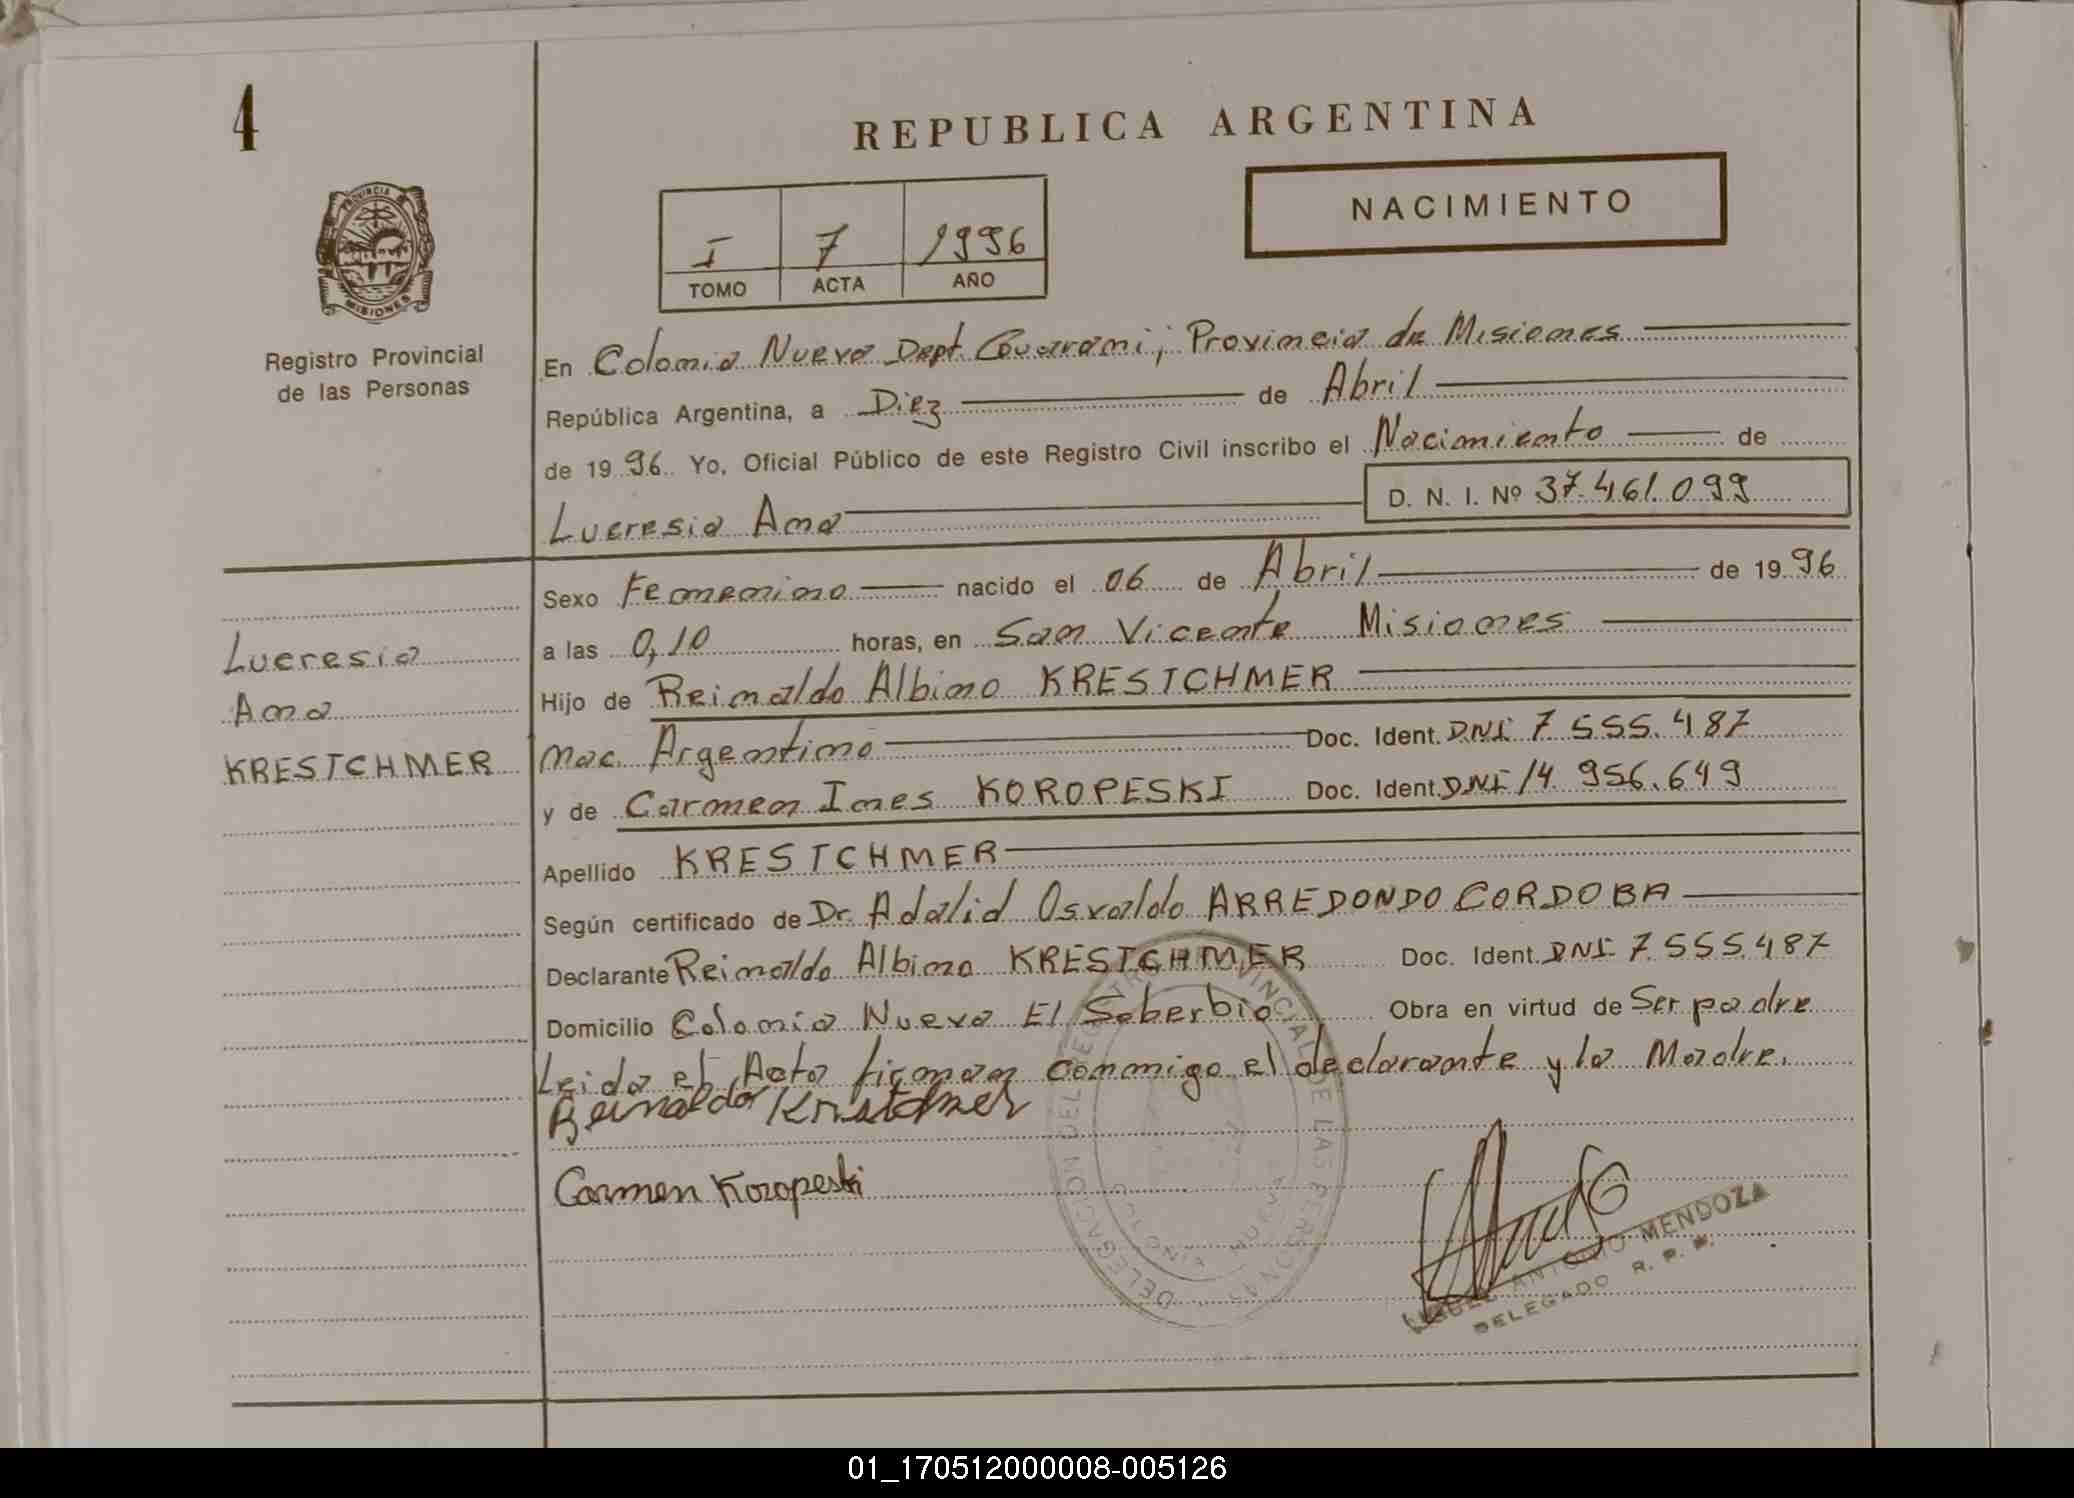 4
REPUBLICA ARGENTINA
NACIMIENTO
PROVINCIA
MISIONES
I 7 1996
TOMO ACTA AÑO
Registro Provincial
de las Personas
En Colonia Nueva Dept. Guarani; Provincia de Misiones
República Argentina, a Diez de Abril
de 1996. Yo, Oficial Público de este Registro Civil inscribo el Nacimiento de
Lucresia Ana D. N. I. Nº 37.461.099
Sexo Femenino nacido el 06 de Abril de 1996
a las 0,10 horas, en San Vicente Misiones
Hijo de Reinaldo Albino KRESTCHMER
nac. Argentino Doc. Ident. DNI 7 555.487
y de Carmen Ines KOROPESKI Doc. Ident. DNI 14.956.649
Lucresia
Ana
KRESTCHMER
Apellido KRESTCHMER
Según certificado de Dr. Adalid Osvaldo ARREDONDO CORDOBA
Declarante Reinaldo Albino KRESTCHMER Doc. Ident. DNI 7.555.487
Domicilio Colonia Nueva El Soberbio Obra en virtud de Ser padre
Leida el Acta firman conmigo el declarante y la Madre.
Reinaldo Kristchmer
Carmen Koropeski
DELEGACION DEL REGISTRO PROVINCIAL DE LAS PERSONAS
ANTONIO MENDOZA
DELEGADO R. P. P.
01_170512000008-005126